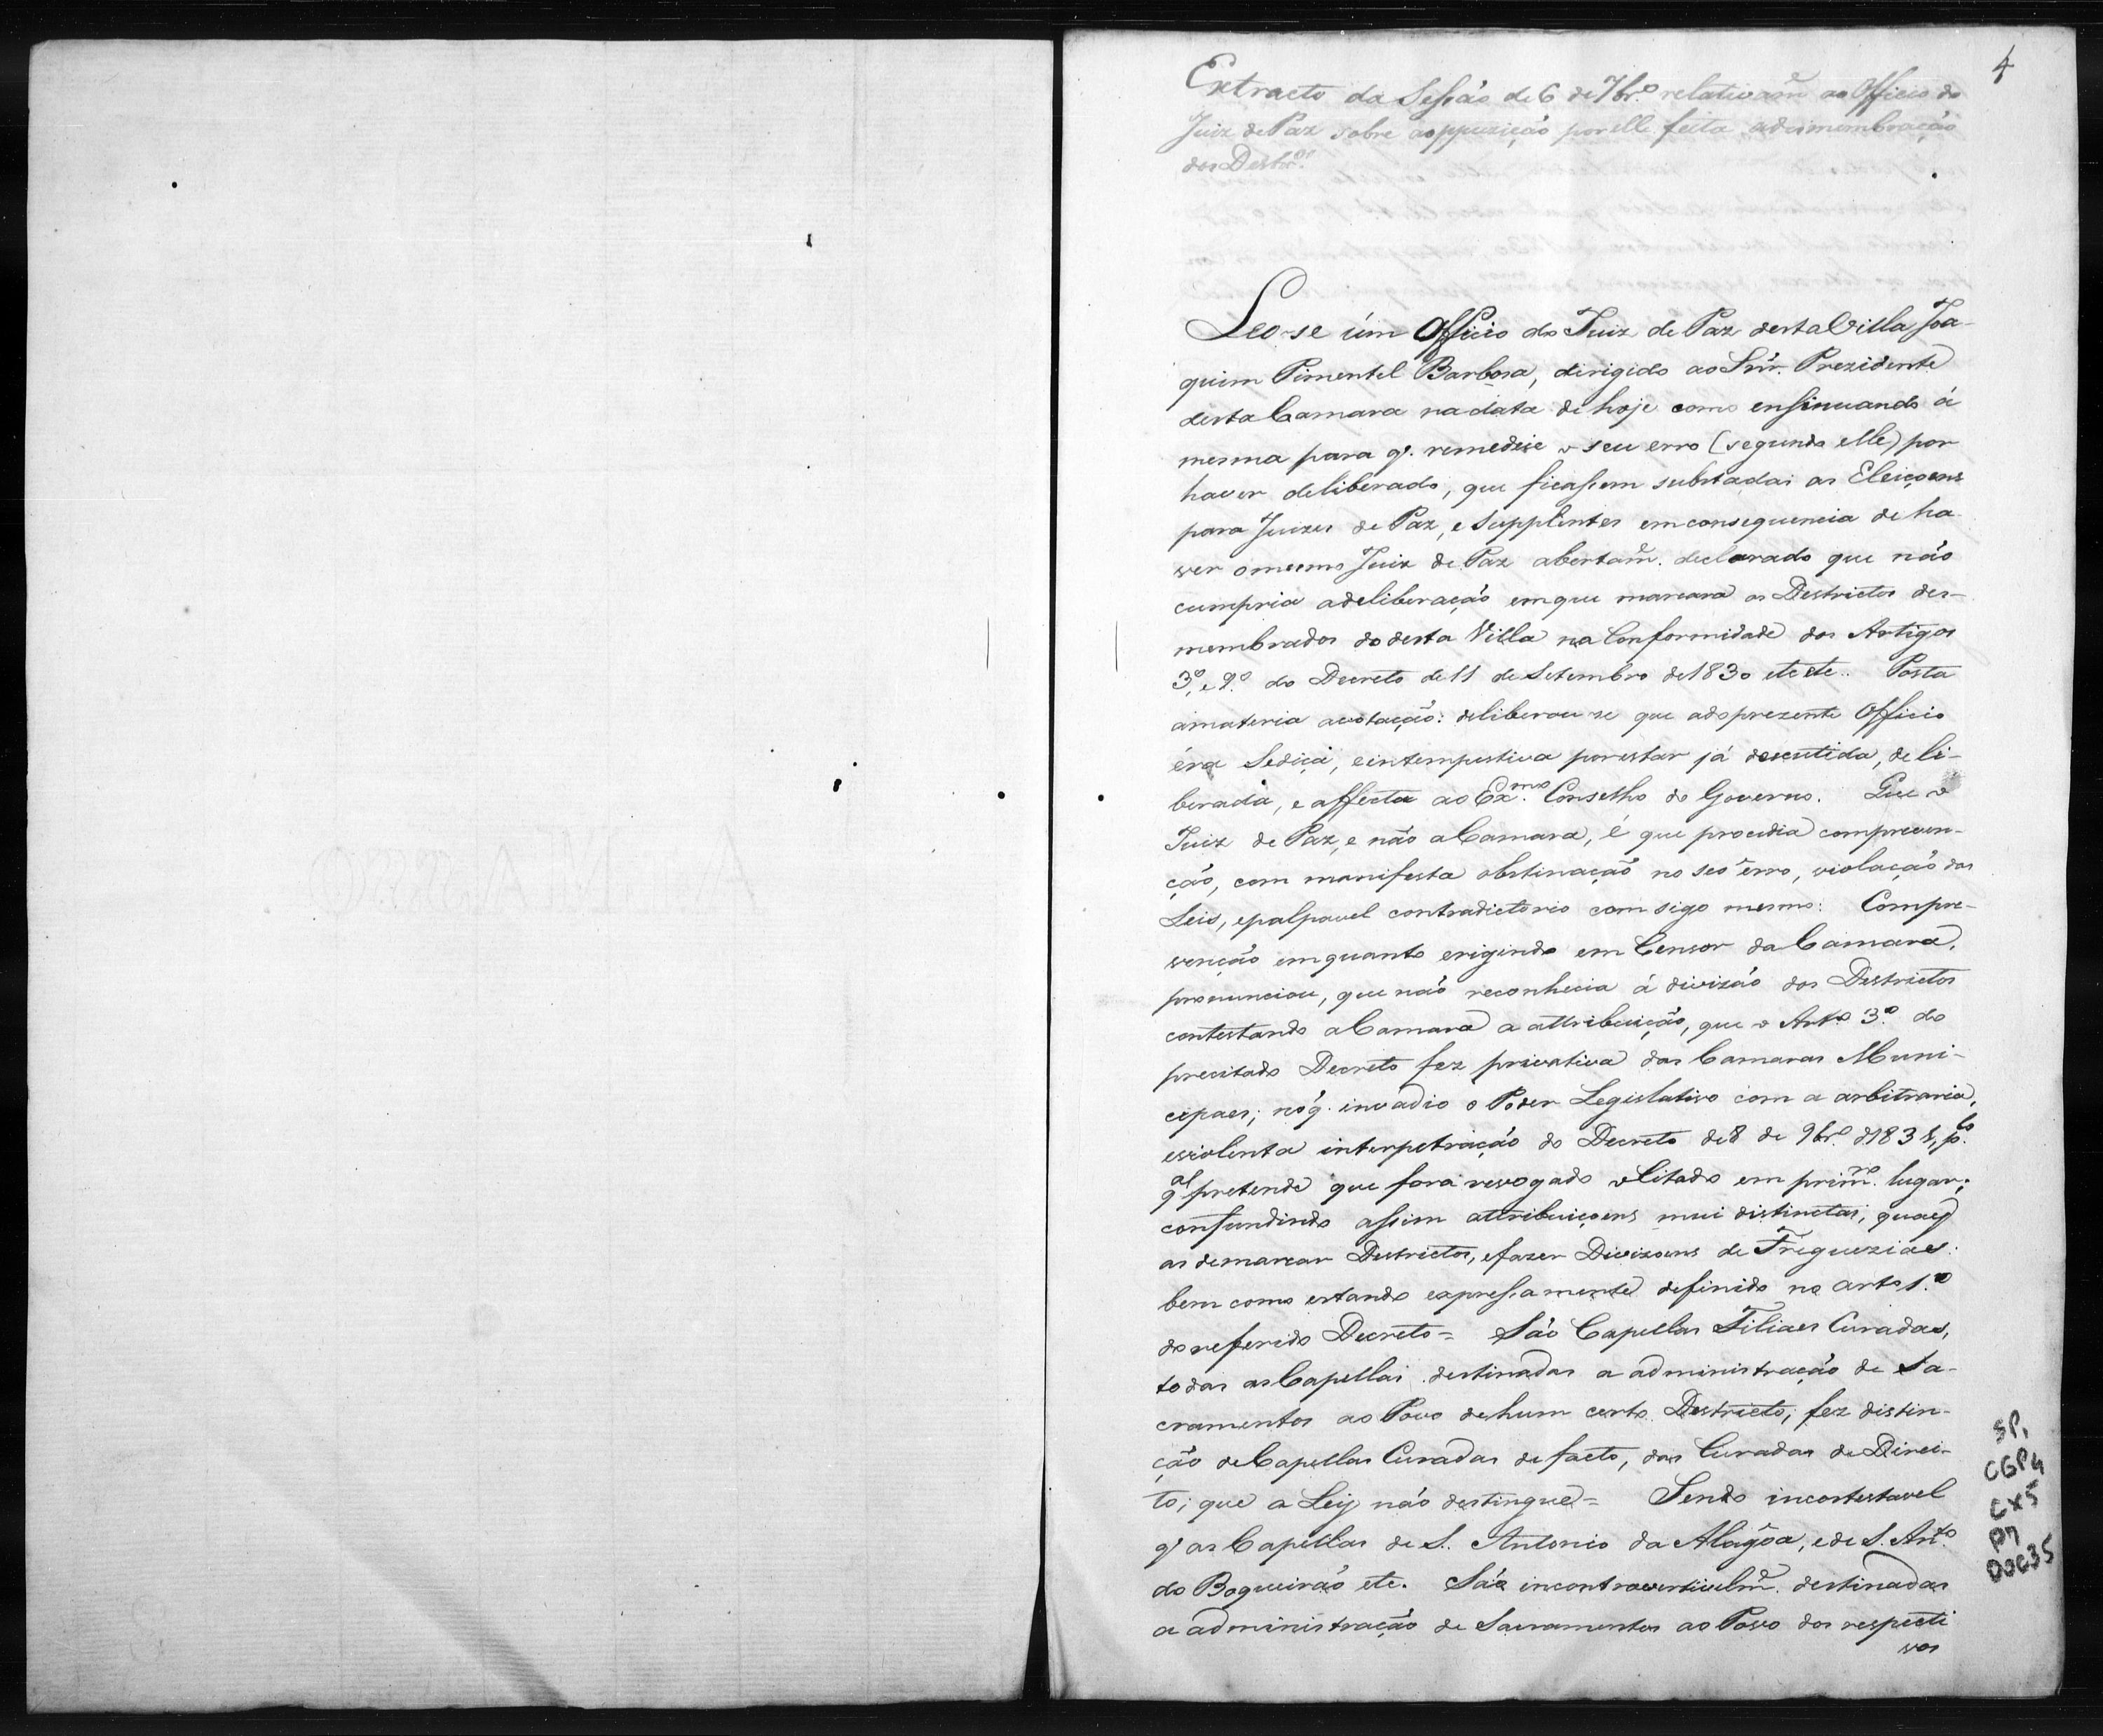 4
Extracto da Sessão de 6 de 7br.o relativam.e ao Officio do
Juiz de Paz sobre aoppuzição porelle feita adesmembração
dos Destr.os
Leo-se úm Officio do Juiz de Paz desta Villa Joa-
quim Pimentel Barbosa, dirigido ao Snr. Prezidente
desta Camara nadata de hoje como ensinuando á
mesma para q. remedeie o seu erro (segundo elle) por
haver deliberado, que ficassem substadas as Eleiçoens
para Juizes de Paz, e Supplentes emconsequencia de ha-
ver omesmo Juiz de Paz abertam.e declarado que não
cumpria adeliberação emque marcara os Destrictos des-
membrados do desta Villa na Conformidade dos Artigos
3.o, e 9.o do Decreto de 11 de Setembro de 1830 etc etc. Posta
amateria avotação: deliberou-se que adoprezente Officio
éra Sediça, eintempestiva porestar já descutida, deli-
berada, e affecta ao Ex.mo Conselho do Governo. Que o
Juiz de Paz, e não aCamara, é que procedia comprevem-
ção, com manifesta obstinação no seo erro, violação das
Leis, epalpavel contradictorio com sigo mesmo: Compre-
venção emquanto erigindo em Censor da Camara,
pronunciou, que não reconhecia á divizão dos Destrictos
contestando aCamara a attribuição, que o Art.o 3.o do
precitado Decreto fez privativa das Camaras Muni-
cepaes; nóq. invadio o Poder Legislativo com a arbitraria,
eviolenta interpetração do Decreto de 8 de 9br.o d183 , p.lo
q.al pretende que fora revogado oCitado em prim.ro lugar;
confundindo assim attribuiçoens mui distinctas, quaes
as demarcar Destrictos, efazer Divizoens de Freguezias:
bem como estando expressamente definido no arto 1.o
do referido Decreto = São Capellas Filiaes Curadas,
todas asCapellas destinadas a administração de Sa-
cramentos ao Povo dehum certo Destricto; fez distin-
ção deCapellas Curadas de facto, das Curadas de Direi-
to; que a Ley não destingue = Sendo incostestavel
q. as Capellas de S. Antonio da Alagôa, ede S. Ant.o
do Boqueirão etc. São incontroversivelm.e destinadas
a administração de Sacramentos ao Povo dos respecti
vos
SP,
CGP4
CX5
P7
DOC35